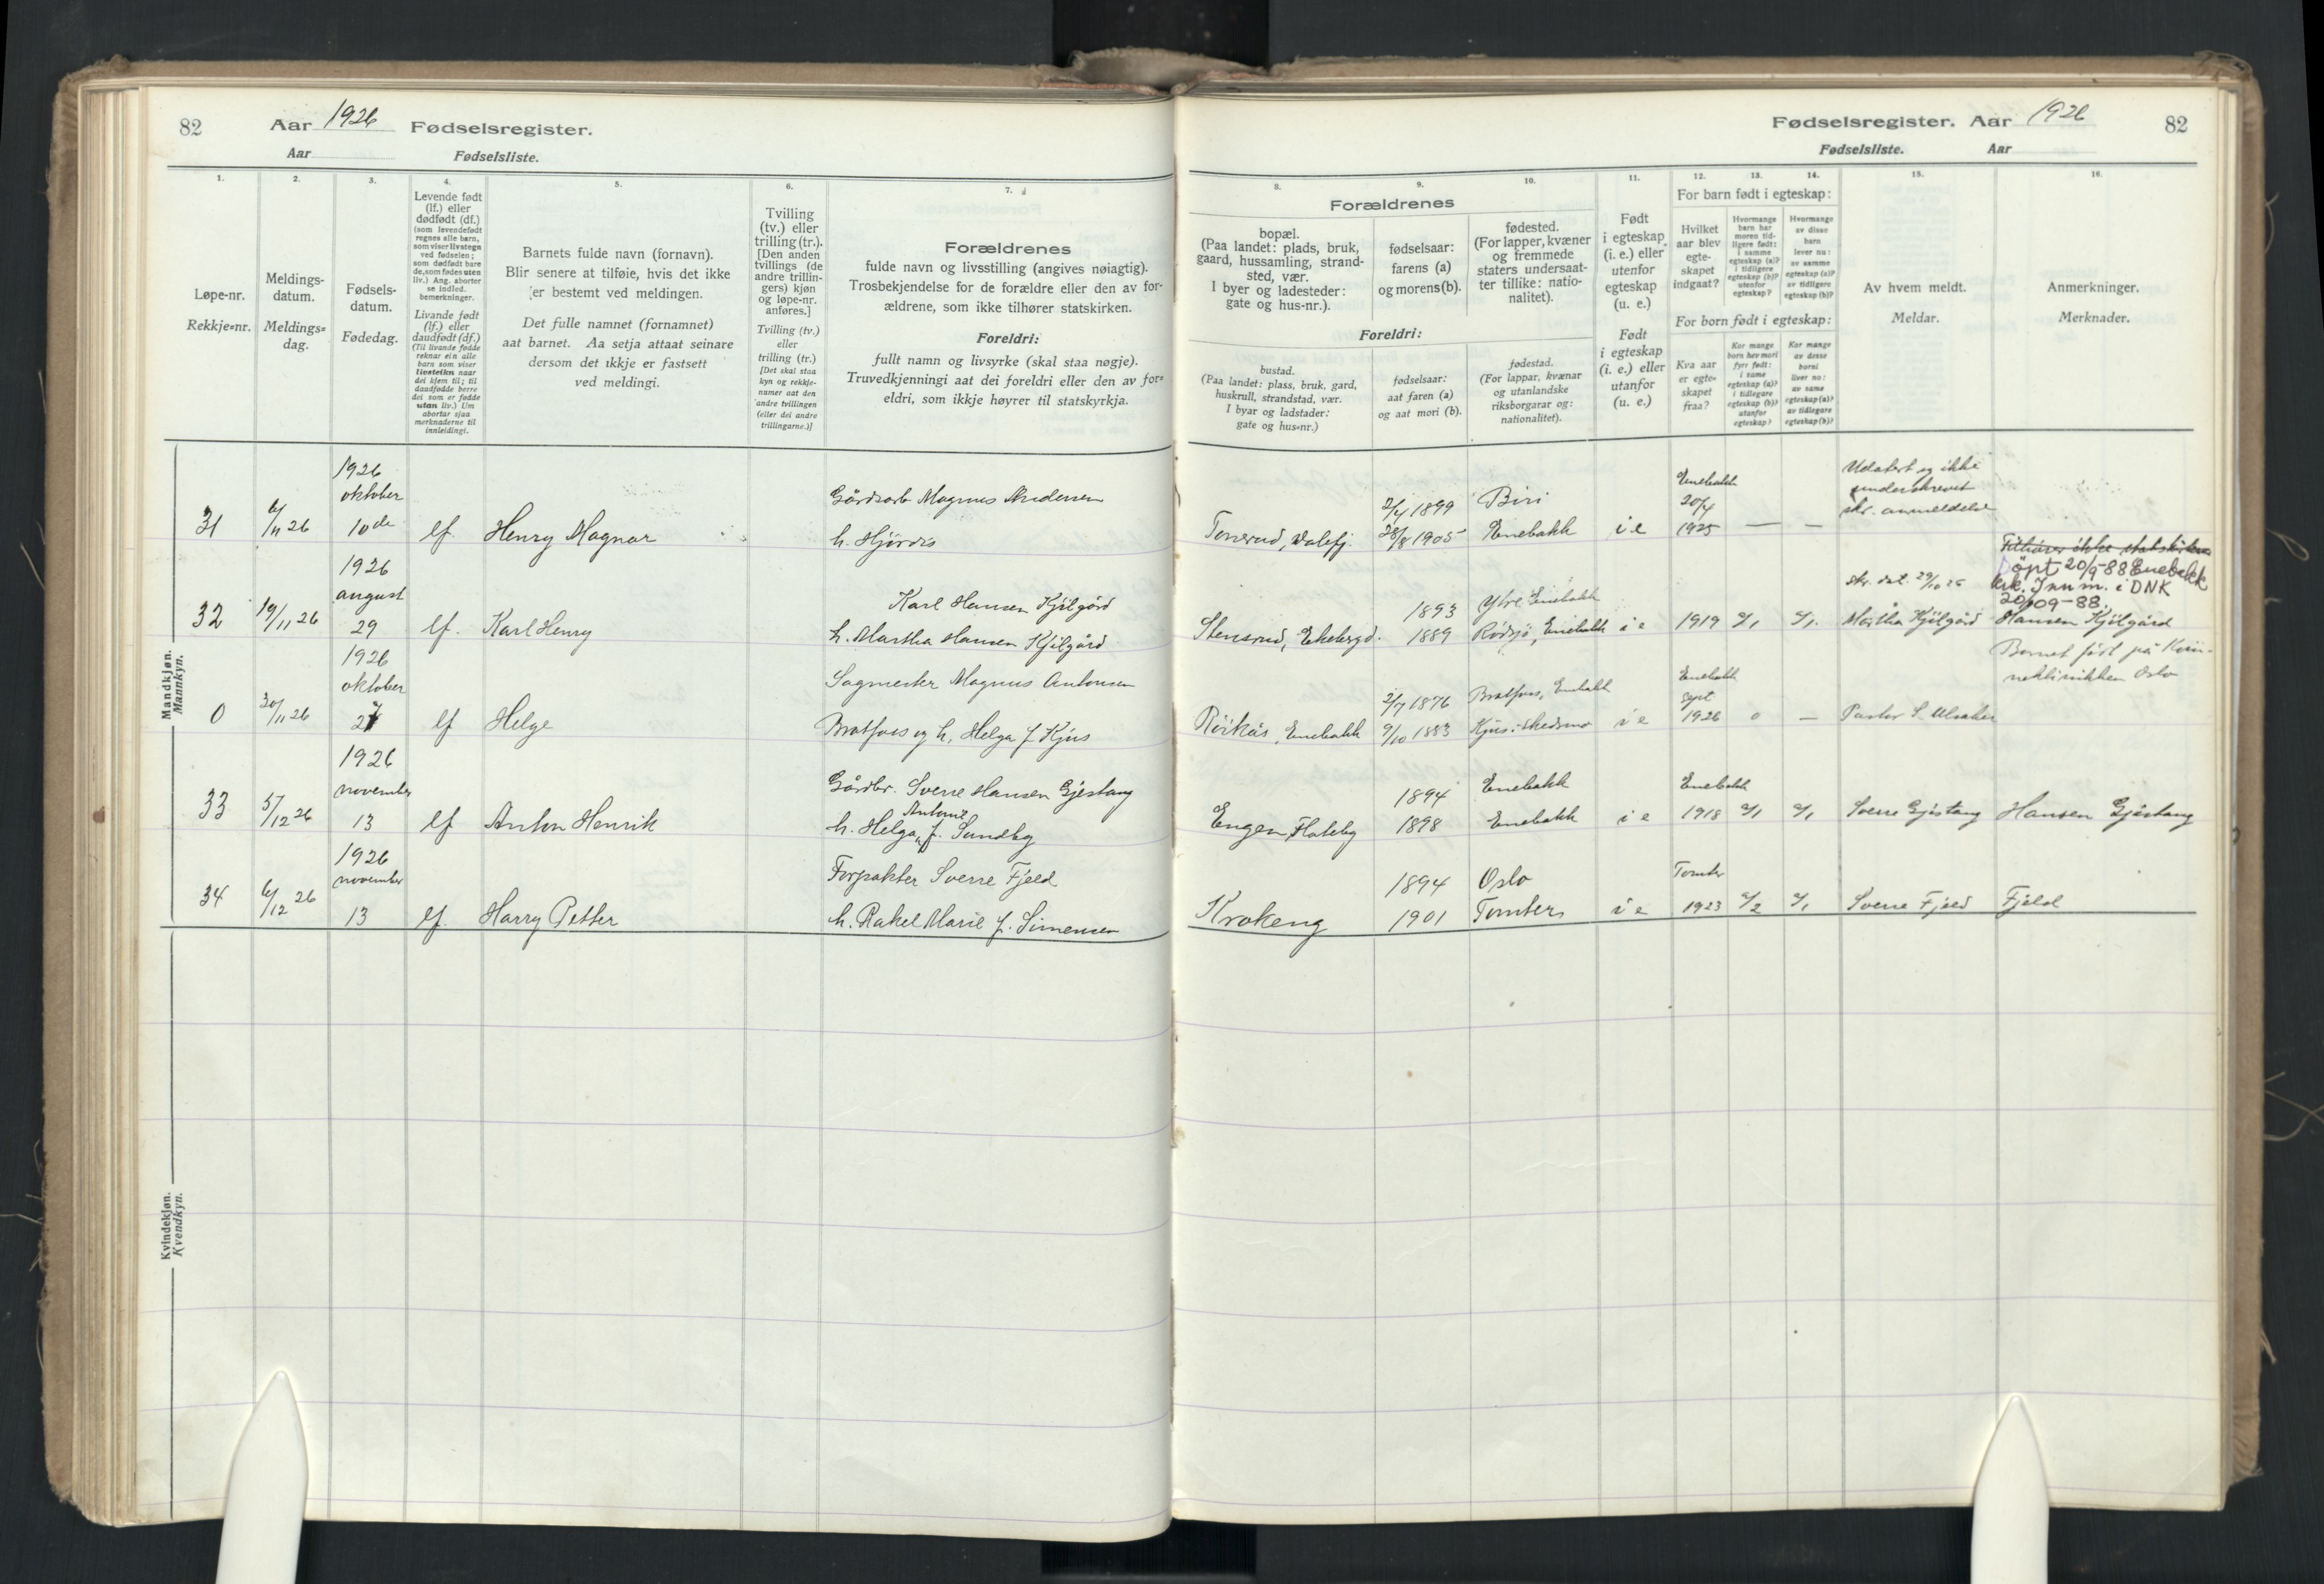 82 Aar 1926 Fødselsregister.
Aar Fødselsliste.
Fødselsregister. Aar 1926 82
Fødselsliste. Aar
1.
Løpe-nr.
Rekkje=nr.
2.
Meldings-
datum.
Meldings=
dag.
3.
Fødsels-
datum.
Fødedag.
4.
Levende født
(lf.) eller
dødfødt (df.)
(som levendefødt
regnes alle barn,
som viser livstegn
ved fødselen;
som dødfødt bare
de, som fødes uten
liv.) Ang. aborter
se indled.
bemerkninger.
Livande født
(lf.) eller
daudfødt (df.)
(Til livande fødde
reknar ein alle
barn som viser
livsteikn naar
dei kjem til; til
daudfødde berre
dei som er fødde
utan liv.) Um
abortar sjaa
merknaderne til
innleidingi.
5.
Barnets fulde navn (fornavn).
Blir senere at tilføie, hvis det ikke
er bestemt ved meldingen.
Det fulle namnet (fornamnet)
aat barnet. Aa setja attaat seinare
dersom det ikkje er fastsett
ved meldingi.
6.
Tvilling
(tv.) eller
trilling (tr.).
[Den anden
tvillings (de
andre trillin-
gers) kjøn
og løpe-nr.
anføres.]
Tvilling (tv.)
eller
trilling (tr.)
[Det skal staa
kyn og rekkje-
numer aat den
andre tvillingen
(eller dei andre
trillingarne.)]
7.
Forældrenes
fulde navn og livsstilling (angives nøiagtig).
Trosbekjendelse for de forældre eller den av for-
ældrene, som ikke tilhører statskirken.
Foreldri:
fullt namn og livsyrke (skal staa nøgje).
Truvedkjenningi aat dei foreldri eller den av for=
eldri, som ikkje høyrer til statskyrkja.
Forældrenes
8.
bopæl.
(Paa landet: plads, bruk,
gaard, hussamling, strand-
sted, vær.
I byer og ladesteder:
gate og hus-nr.).
9.
fødselsaar:
farens (a)
og morens (b).
10.
fødested.
(For lapper, kvæner
og fremmede
staters undersaat-
ter tillike: natio-
nalitet).
Foreldri:
bustad.
(Paa landet: plass, bruk, gard,
huskrull, strandstad, vær.
I byar og ladstader:
gate og hus=nr.)
fødselsaar:
aat faren (a)
og aat mori (b).
fødestad.
(For lappar, kvænar
og utanlandske
riksborgarar og:
nationalitet).
11.
Født
i egteskap
(i. e.) eller
utenfor
egteskap
(u. e.)
Født
i egteskap
(i. e.) eller
utanfor
(u. e.)
12. 13. 14.
For barn født i egteskap:
Hvilket
aar blev
egte-
skapet
indgaat?
Hvormange
barn har
moren tid-
ligere født:
i samme
egteskap (a)?
i tidligere
egteskap (b)?
utenfor
egteskap?
Hvormange
av disse
barn
lever nu:
av samme
egteskap (a)?
av tidligere
egteskap (b)?
For born født i egteskap:
Kva aar
er egte-
skapet
fraa?
Kor mange
born hev mori
fyrr født:
i same
egteskap (a)?
i tidlegare
egteskap (b)?
utanfor
egteskap?
Kor mange
av desse
borni
liver no:
av same
egteskap (a)?
av tidlegare
egteskap (b)?
15.
Av hvem meldt.
Meldar.
16.
Anmerkninger.
Merknader.
Mandkjøn.
Mannkyn.
1926
oktober
31 6/11 26 10de lf. Henry Magnar
Gårdsarb Magnus Andersen
h. Hjördis
Tonerud, Dalefj.
2/4 1899 Biri
28/8 1905 Enebakk i e
Enebakk
20/4
1925 — —
Udatert og ikke
underskrevet
skr. anmeldelse
1926
august
32 19/11 26 29 lf. Karl Henry
Karl Hansen Kjilgård
h. Martha Hansen Kjilgård
Stenerud, Ekebergd.
1893 Ytre Enebakk
1889 Rödsjö, Enebakk i e 1919 a/1 a/1.
skr. dat. 29/10 26
Martha Kjilgård Hansen Kjilgård
Tilhører ikke statskirken
Döpt 20/9-88 Enebakk
kirk. Innm. i DNK
20/09-88.
1926
oktober
0 20/11 26 27 lf Helge
Sagmester Magnus Antonsen
Bratfoss og h. Helga f. Kjus
Röikås, Enebakk
2/7 1876 Bratfoss, Enebakk
9/10 1883 Kjus i Skedsmo i e
Enebakk
Sept
1926 0 —
Pastor S.
Barnet født på Kvin-
neklinikken Oslo
1926
november
33 5/12 26 13 lf Anton Henrik
Gårdbr. Sverre Hansen Gjestang
h. Helga Antonie f. Sundby
Engen, Flateby
1894 Enebakk
1898 Enebakk i e
Enebakk
1918 a/1 a/1 Sverre Gjestang Hansen Gjestang
1926
november
34 6/12 26 13 lf. Harry Petter
Forpakter Sverre Fjeld
h. Rakel Marie f. Simensen
Krokeng
1894 Oslo
1901 Tomter i e
Tomter
1923 a/2 a/1 Sverre Fjeld Fjeld
Kvindekjøn.
Kvendkyn.